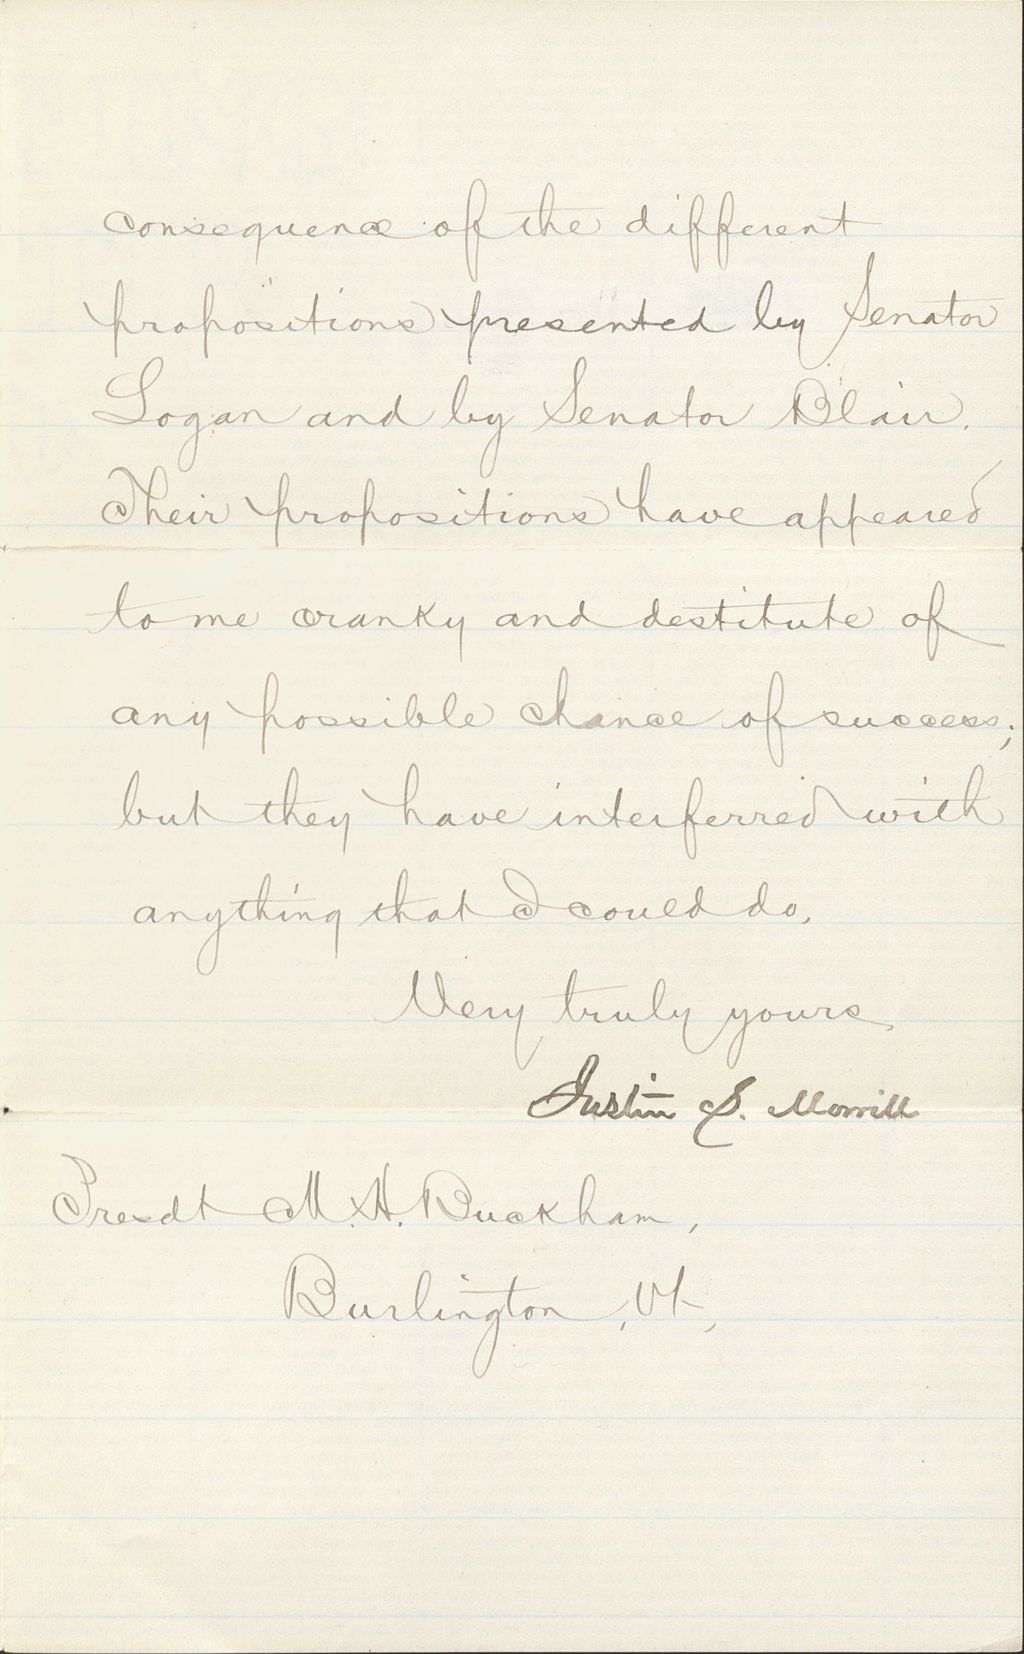 consequence of the different
propositions presented by Senator
Logan and by Senator Blair.
Their propositions have appeared
to me cranky and destitute of
any possible chance of success;
but they have interferred with
anything that I could do.
Very truly yours,
Justin S. Morrill
Presdt M. H. Buckham,
Burlington, Vt,